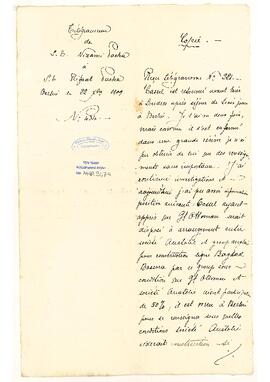 Télégramme
de
S. E. Nizami Pacha
à
S. E. Rifaat Pacha
Berlin le 22 Xbre 1909
Nº
Copie.
Reçu télégramme Nº
Cassel est retourné avant hier
à Londres après séjour de trois jours
à Berlin. J'ai vu deux fois,
mais comme il s'est enfermé
dans une grande réserve je n'ai
pu obtenir de lui que des rensei-
gnements sans importance. J'ai
continué investigations et
j'ai pu ainsi
position suivante: Cassel ayant
appris que Gt Ottoman serait
disposé à arrangement entre
société Anatolie et groupe anglais
pour construction ligne Bagdad
Bassora par ce groupe sous
condition que Gt Ottoman et
société Anatolie aient participation
de 50%, il est venu à Berlin
pour se renseigner sous quelles
conditions société Anatolie
céderait construction de